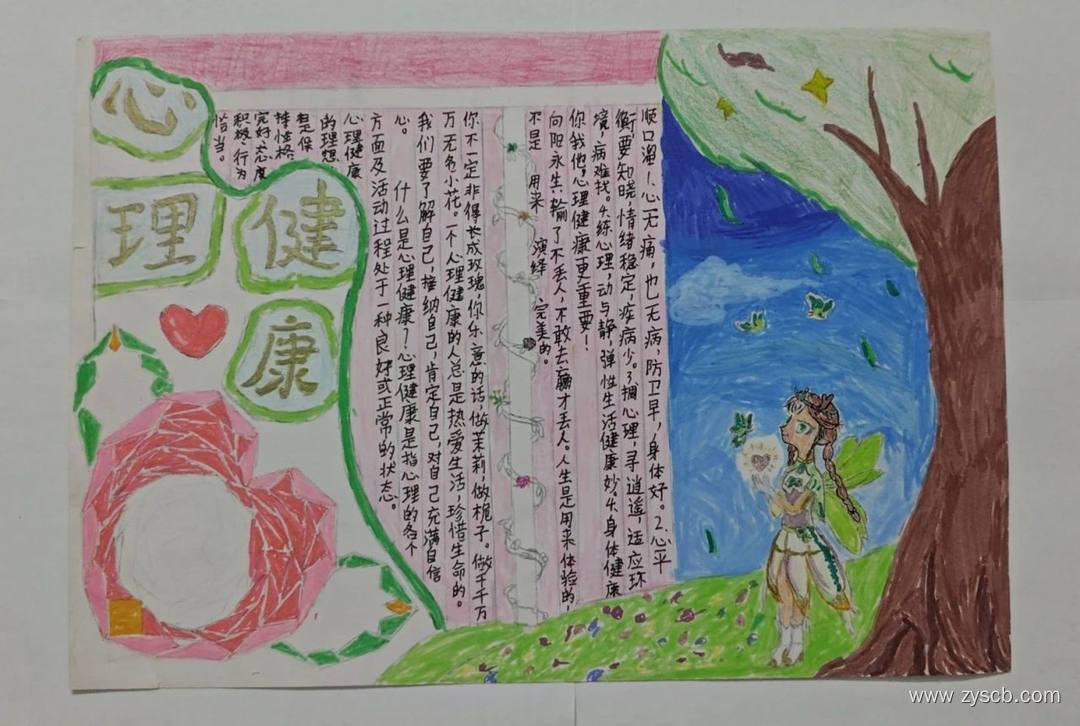 心
理健
康
顺口溜1、心无痛,也无病,防卫早,身体好。2.心平
衡,要知晓,情绪稳定,疾病少。3.心理,寻逍遥,适应环
境,病难找。4.练心理,动与静,弹性生活健康妙。4.身体健康
你我他,心理健康更重要!
向阳永生,输了不丢人,不敢去赢才丢人。人生是用来体验的,
不是 用来 演绎 完美的。
你不一定非得长成玫瑰,你乐意的话,做茉莉,做栀子。做千千万
万无名小花。一个人理健康的人总是热爱生活,珍惜生命的。
我们要了解自己,接纳自己,肯定自己,对自己充满自信
心。 什么是心理健康—心理健康是指心理的各个
方面及活动过程处于一种良好或正常的状态。
心理健康
的理想
是保
持性格
完好、态度
积极、行为
恰当。
www.zyscb.com